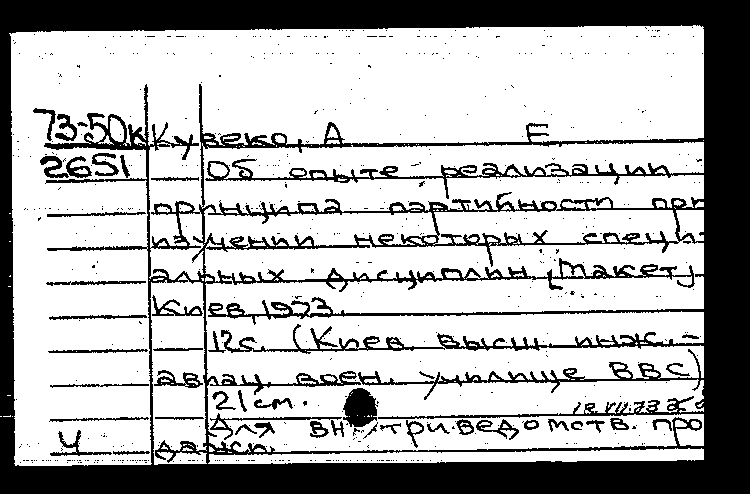 73-50к Кувеко, А Е
2651 Об опыте реализации
принципа партийности при
изучении некоторых специ-
альных дисциплин [Макет]
Киев, 1973.
12с. (Киев. высш. инж.-
авиац. воен. училище ВВС)
21 см.
18.VII.73
Для внутриведомств. про
Ч дажи.